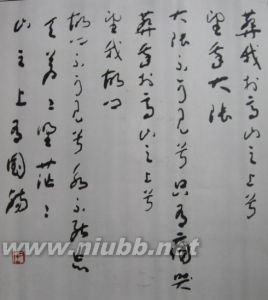 葬我於高山之上兮
望我大陸
大陸不可見兮只有痛哭
葬我於高山之上兮
望我故鄉
故鄉不可見兮永不能忘
天蒼〻野茫〻
山之上有國殤
www.niubb.net